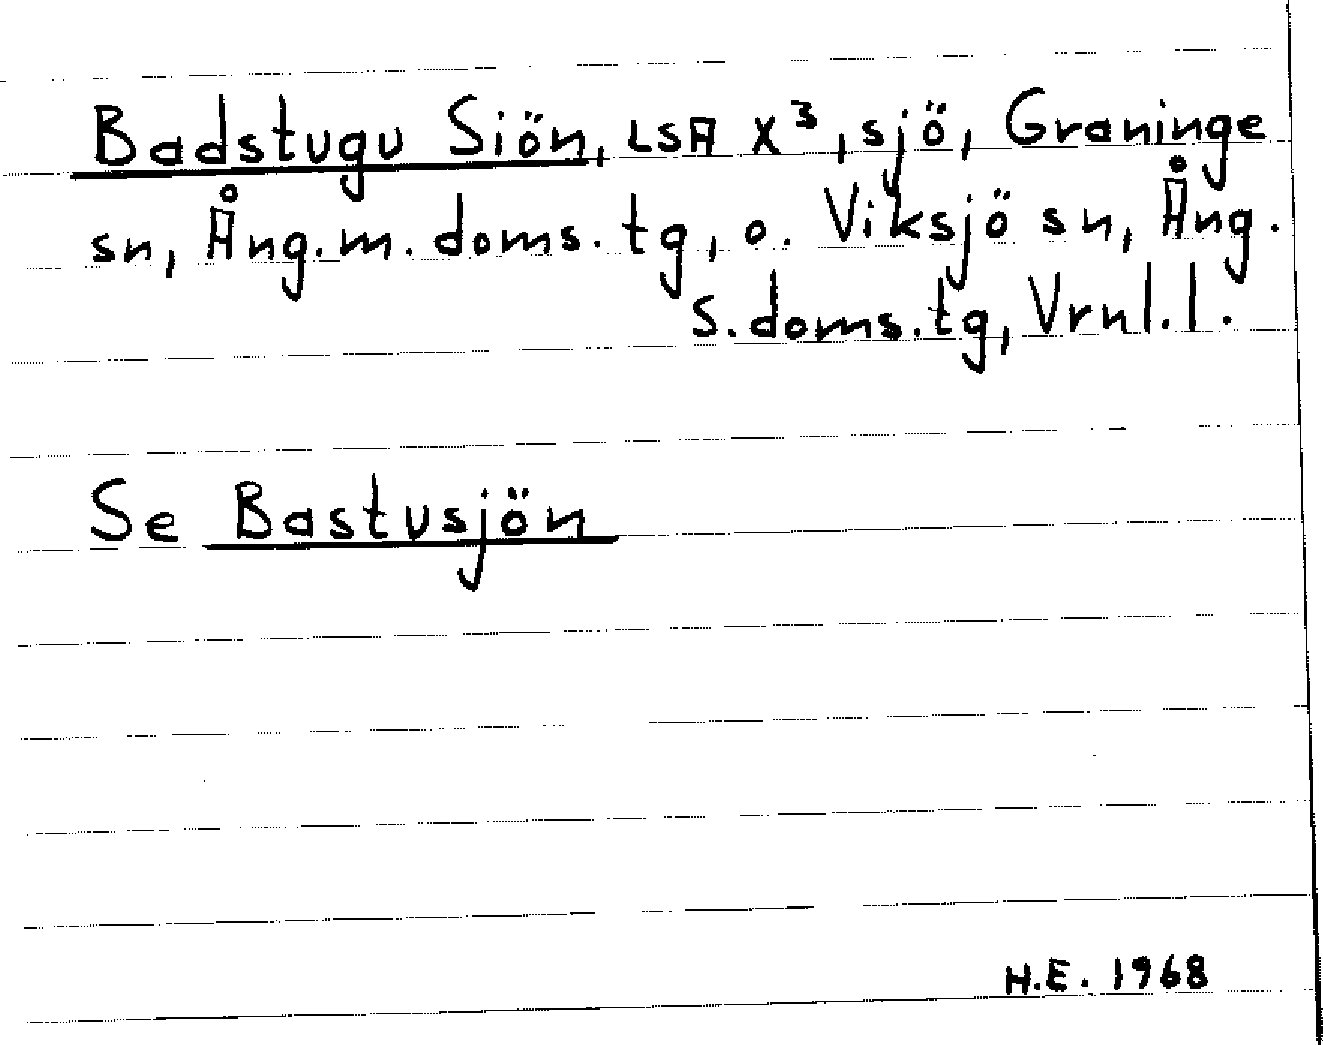 Badstugu Siön, LSA X³, sjö, Graninge
sn, Ång.m. doms. tg, o. Viksjö sn, Ång.
s. doms. tg, Vrnl. l.
Se Bastusjön
H.E. 1968